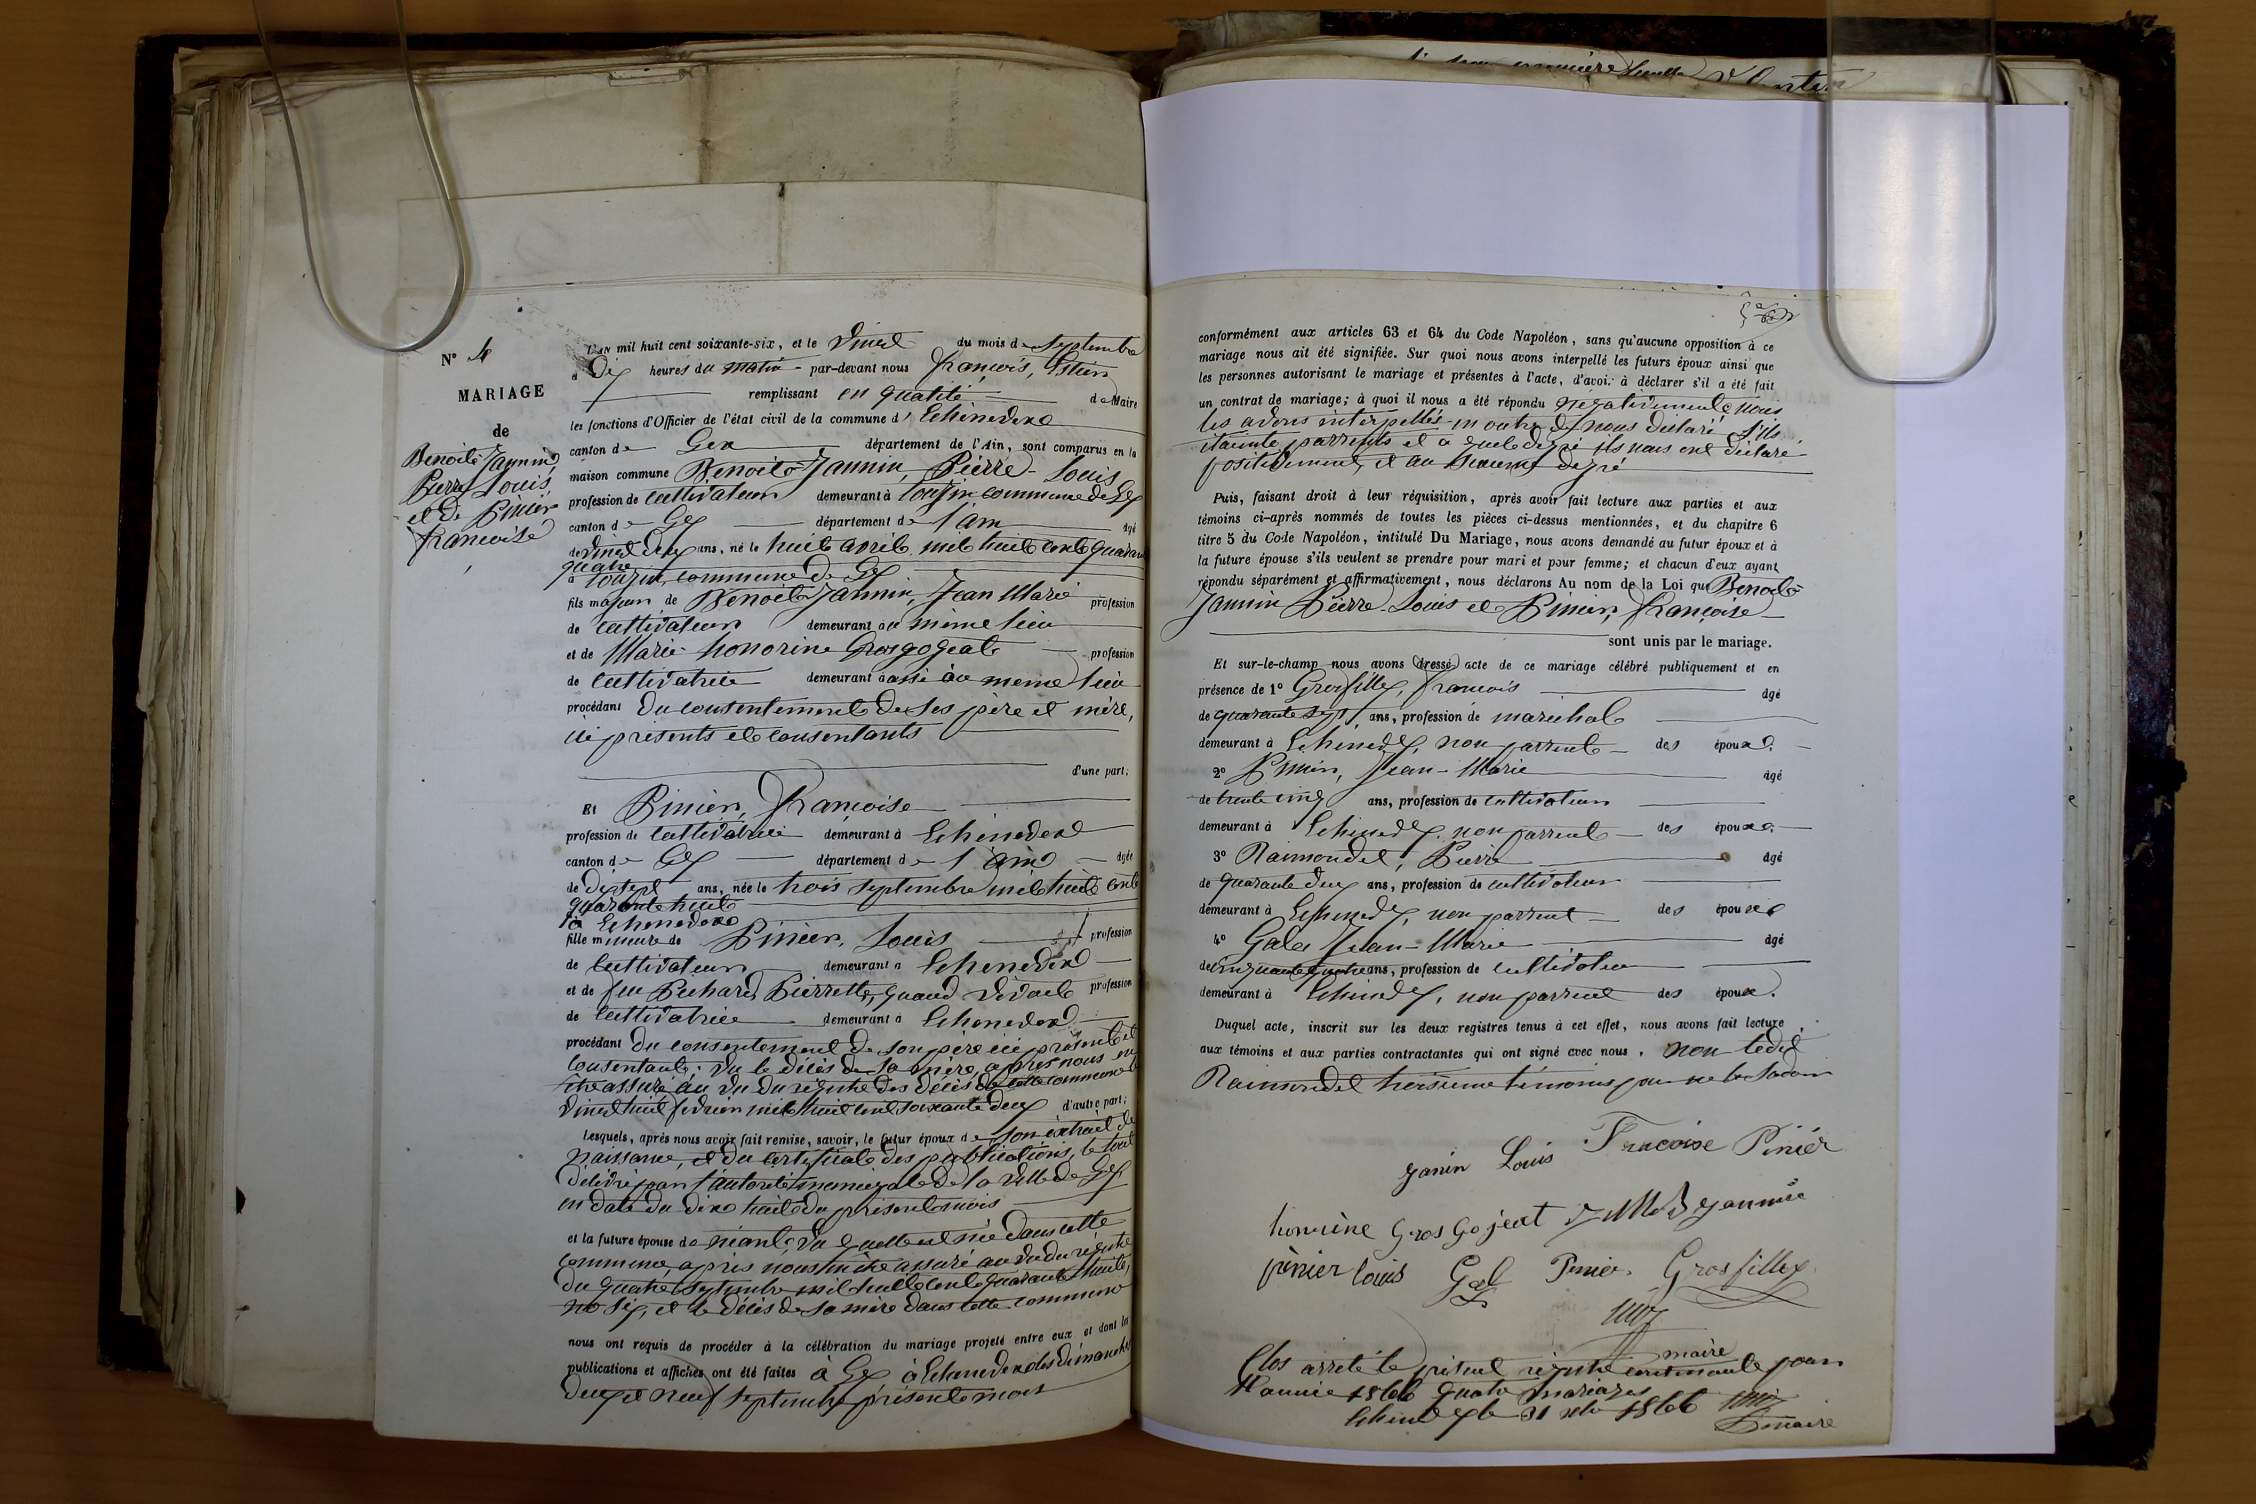 N° 4
MARIAGE
de
Benoit-Jannin,
Pierre Louis,
et de Pinier
françoise
L'AN mil huit cent soixante-six, et le vingt du mois de septembre
à dix heures du matin par-devant nous françois,
remplissant en qualité de Maire
les fonctions d'Officier de l'état civil de la commune d' Echenevex
canton de Gex département de l'Ain, sont comparus en la
maison commune Benoit-Jannin, Pierre-Louis
profession de cultivateur demeurant à Tougin commune de Gex
canton de Gex département de l'ain âgé
de vingt deux ans, né le huit avril mil huit cent quarante
quatre
à Tougin, commune de Gex
fils majeur de Benoit-Jannin, Jean Marie profession
de cultivateur demeurant au même lieu
et de Marie-honorine Grosgogeat profession
de cultivatrice demeurant aussi au meme lieu
procédant du consentement de ses père et mère,
ici présents et consentants
d'une part;
Et Pinier, françoise
profession de cultivatrice demeurant à Echenevex
canton de Gex département de l'ain âgée
de dixsept ans, née le trois septembre mil huit cent
quarante huit
à Echenevex
fille mineure de Pinier, Louis profession
de cultivateur demeurant à Echenevex
et de feu Pechard Pierrette, quand vivait profession
de cultivatrice demeurant à Echenevex
procédant du consentement de son père ici présent et
consentant; vu le décès de sa mère, apres nous en
être assuré au vu du registre des décès de cette commune du
vingt huit fevrier mil huit cent soixante deux d'autre part;
Lesquels, après nous avoir fait remise, savoir, le futur époux de son extrait de
naissance, et du certificat des publications, le tout
délivré par l'autorité municipale de la ville de Gex
en date du dix huit du present mois
et la future épouse de néant, vu quelle est née dans cette
commune, apres nous en être assuré au vu du registre
du quatre septembre mil huit cent quarante huit,
no six, et le décès de sa mère dans cette commune
nous ont requis de procéder à la célébration du mariage projeté entre eux et dont les
publications et affiches ont été faites à Gex, à Echenevex les dimanches
deux et neuf septembre présent mois
conformément aux articles 63 et 64 du Code Napoléon, sans qu'aucune opposition à ce
mariage nous ait été signifiée. Sur quoi nous avons interpellé les futurs époux ainsi que
les personnes autorisant le mariage et présentes à l'acte, d'avoir à déclarer s'il a été fait
un contrat de mariage; à quoi il nous a été répondu négativement, nous
les avons interpellés en outre de nous déclaré s'ils
étaient parrents et a quel degré ils nous ont déclaré
positivement, et au degré
Puis, faisant droit à leur réquisition, après avoir fait lecture aux parties et aux
témoins ci-après nommés de toutes les pièces ci-dessus mentionnées, et du chapitre 6
titre 5 du Code Napoléon, intitulé Du Mariage, nous avons demandé au futur époux et à
la future épouse s'ils veulent se prendre pour mari et pour femme; et chacun d'eux ayant
répondu séparément et affirmativement, nous déclarons Au nom de la Loi que Benoit-
Jannin Pierre-Louis et Pinier, françoise
sont unis par le mariage.
Et sur-le-champ nous avons dressé acte de ce mariage célébré publiquement et en
présence de 1° Grosfilley, francois âgé
de quarante sept ans, profession de maréchal
demeurant à Echenevex, non parrent des époux.
2° Pinier, Jean-Marie âgé
de trente cinq ans, profession de cultivateur
demeurant à Echenevex, non parrent des époux.
3° Raimondet, Pierre âgé
de quarante deux ans, profession de cultivateur
demeurant à Echenevex, non parrent des époux
4° Jean-Marie âgé
de cinquante quatre ans, profession de cultivateur
demeurant à Echenevex, non parrent des époux.
Duquel acte, inscrit sur les deux registres tenus à cet effet, nous avons fait lecture
aux témoins et aux parties contractantes qui ont signé avec nous, non ledit
Raimondet troisième témoins pour ne le savoir
janin Louis Fracoise Pinier
honorine Gros Gojeat
pinier louis Pinier. Grosfilley
maire
Clos arreté le présent registre contenant pour
l'année 1866 quatre mariages
Echenevex le 31 1866
maire